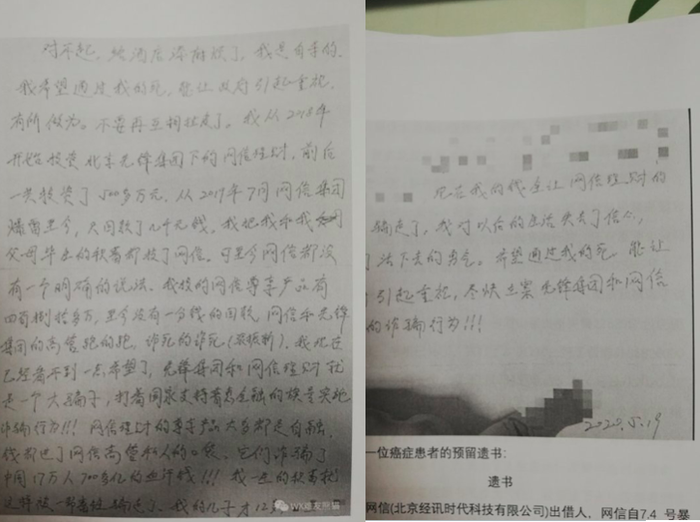 对不起，给酒店添麻烦了，我是自杀的，
我希望通过我的死，能让政府引起重视，
有所作为。不要再互相扯皮了。我从2018年
开始投资北京先锋集团下的网信理财，前后
一共投资了500多万元，从2019年7月网信集团
爆雷至今，只回款了几千元钱，我把我和我
父母毕生的积蓄都投了网信。可至今网信都没
有一个明确的说法，我投的网信尊享产品有
四百捌拾多万，至今没有一分钱的回款，网信和先锋
集团的高管跑的跑，诈死的诈死（张振新），我现在
已经看不到一点希望了，先锋集团和网信理财就
是一个大骗子，打着国家支持普惠金融的旗号实施
诈骗行为!!! 网信理财的尊享产品大多都是自融，
钱都进了网信高管私人的口袋，它们诈骗了
中国17万人700多亿的血汗钱!!! 我一生的积蓄就
这样被骗走了，我的儿子才12岁
WX难友熊猫
现在我的钱全让网信理财的
骗走了，我对以后的生活失去了信心，
活下去的勇气。希望通过我的死，能让
引起重视，尽快立案先锋集团和网信
的诈骗行为!!!
2020.5.19
一位癌症患者的预留遗书：
遗书
网信(北京经讯时代科技有限公司)出借人，网信自7.4 号暴